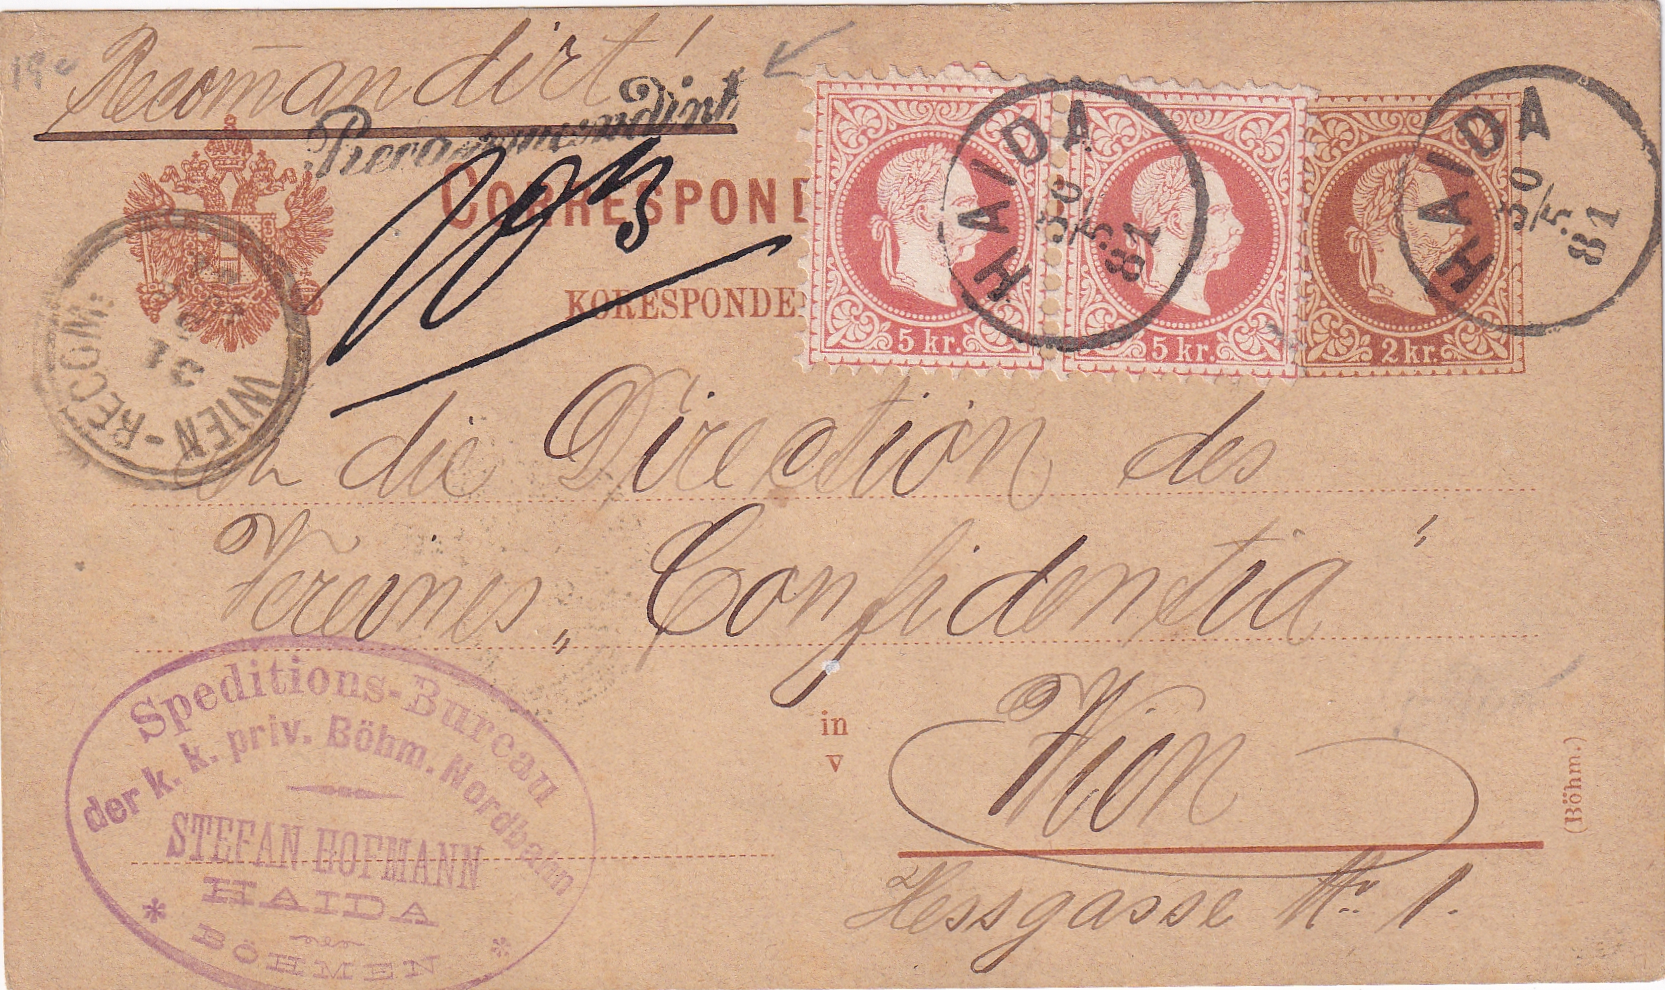 Recomandirt!
Recommandirt
CORRESPOND
KORESPONDE
5 kr.
5 kr.
2 kr.
HAIDA
30
5
81
HAIDA
30/5
81
WIEN-RECOM:
31
5
die Direction des
Vereines „Confidentia"
in
v
Wien
Hessgasse Nr. 1.
(Böhm.)
Speditions-Bureau
der k. k. priv. Böhm. Nordbahn
STEFAN HOFMANN
HAIDA
BÖHMEN